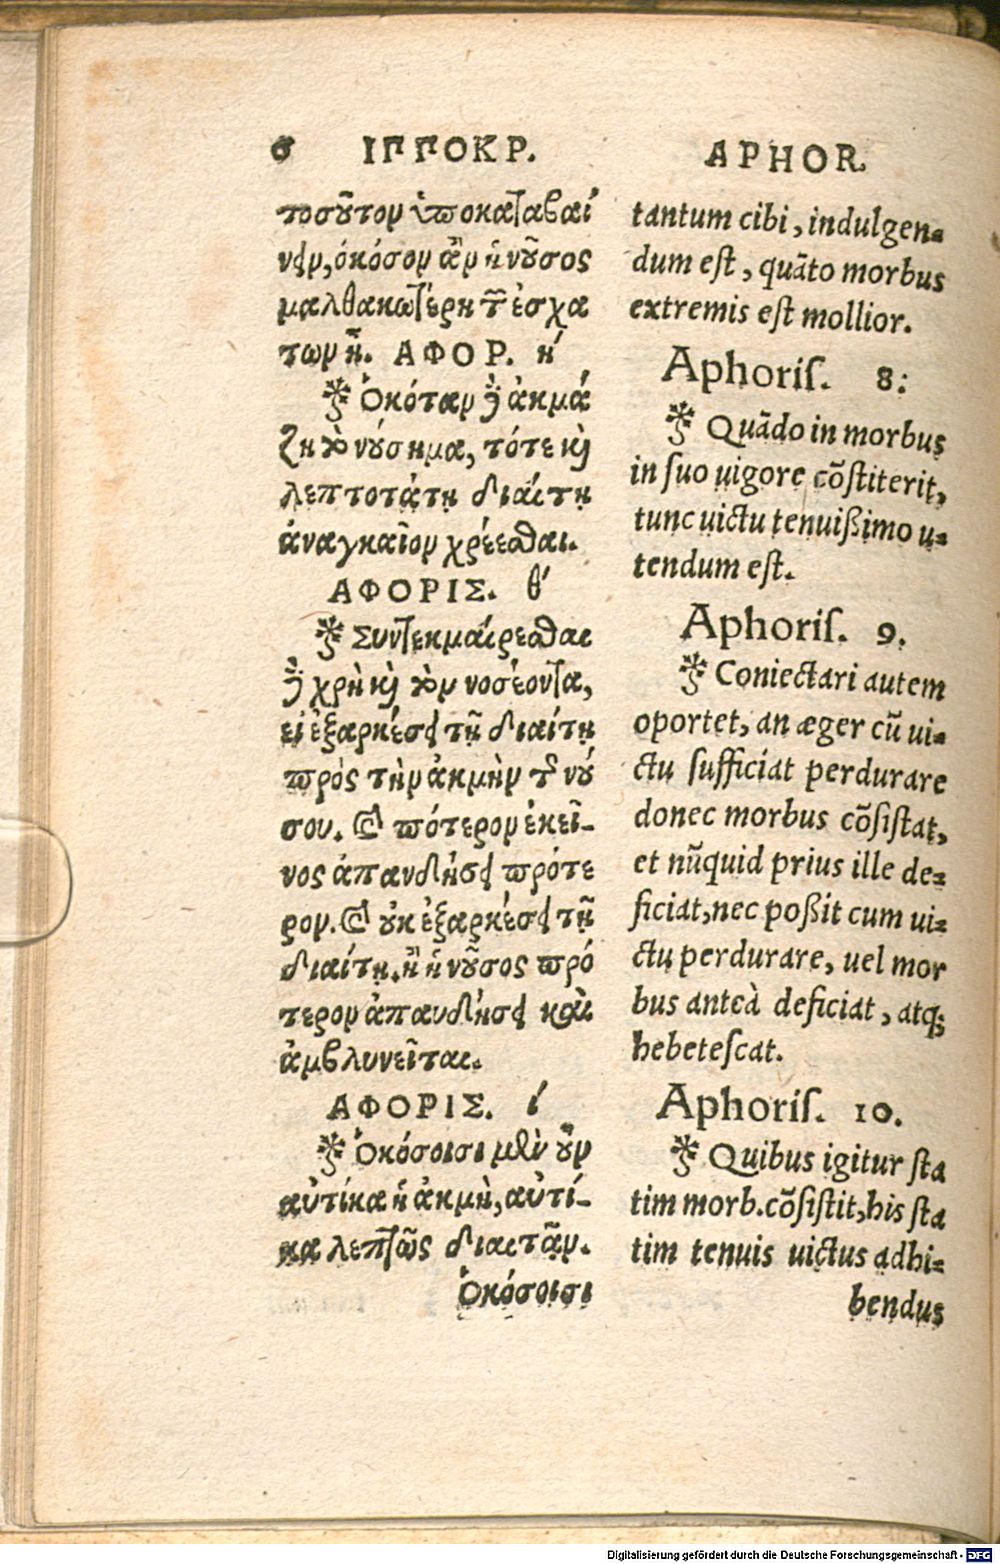 6 ΙΠΠΟΚΡ.
τοσοῦτον ὑποκαταβαί
νειν, ὁκόσον ἂν ἡ νοῦσος
μαλθακωτέρη τῶν ἐσχά
των ᾖ. ΑΦΟΡ. η΄
Ὁκόταν δὲ ἀκμά
ζῃ τὸ νούσημα, τότε καὶ
λεπτοτάτῃ διαίτῃ
ἀναγκαῖον χρέεσθαι.
ΑΦΟΡΙΣ. θ΄
Συντεκμαίρεσθαι
δὲ χρὴ καὶ τὸν νοσέοντα,
εἰ ἐξαρκέσει τῇ διαίτῃ
πρὸς τὴν ἀκμὴν τῆς νού
σου. Καὶ πότερον ἐκεῖ-
νος ἀπαυδήσει πρότε
ρον. Καὶ οὐκ ἐξαρκέσει τῇ
διαίτῃ. ἢ ἡ νοῦσος πρό
τερον ἀπαυδήσει καὶ
ἀμβλυνεῖται.
ΑΦΟΡΙΣ. ί
Ὁκόσοισι μὲν οὖν
αὐτίκα ἡ ἀκμὴ, αὐτί-
κα λεπτῶς διαιτᾷν.
Ὁκόσοισι
APHOR.
tantum cibi, indulgen-
dum est, quāto morbus
extremis est mollior.
Aphoris. 8:
Quādo in morbus
in suo uigore cōstiterit,
tunc uictu tenuißimo u-
tendum est.
Aphoris. 9.
Coniectari autem
oportet, an æger cū ui-
ctu sufficiat perdurare
donec morbus cōsistat,
et nūquid prius ille de-
ficiat, nec poßit cum ui-
ctu perdurare, uel mor
bus anteà deficiat, atq;
hebetescat.
Aphoris. 10.
Quibus igitur sta
tim morb. cōsistit, his sta
tim tenuis uictus adhi-
bendus
Digitalisierung gefördert durch die Deutsche Forschungsgemeinschaft - DFG